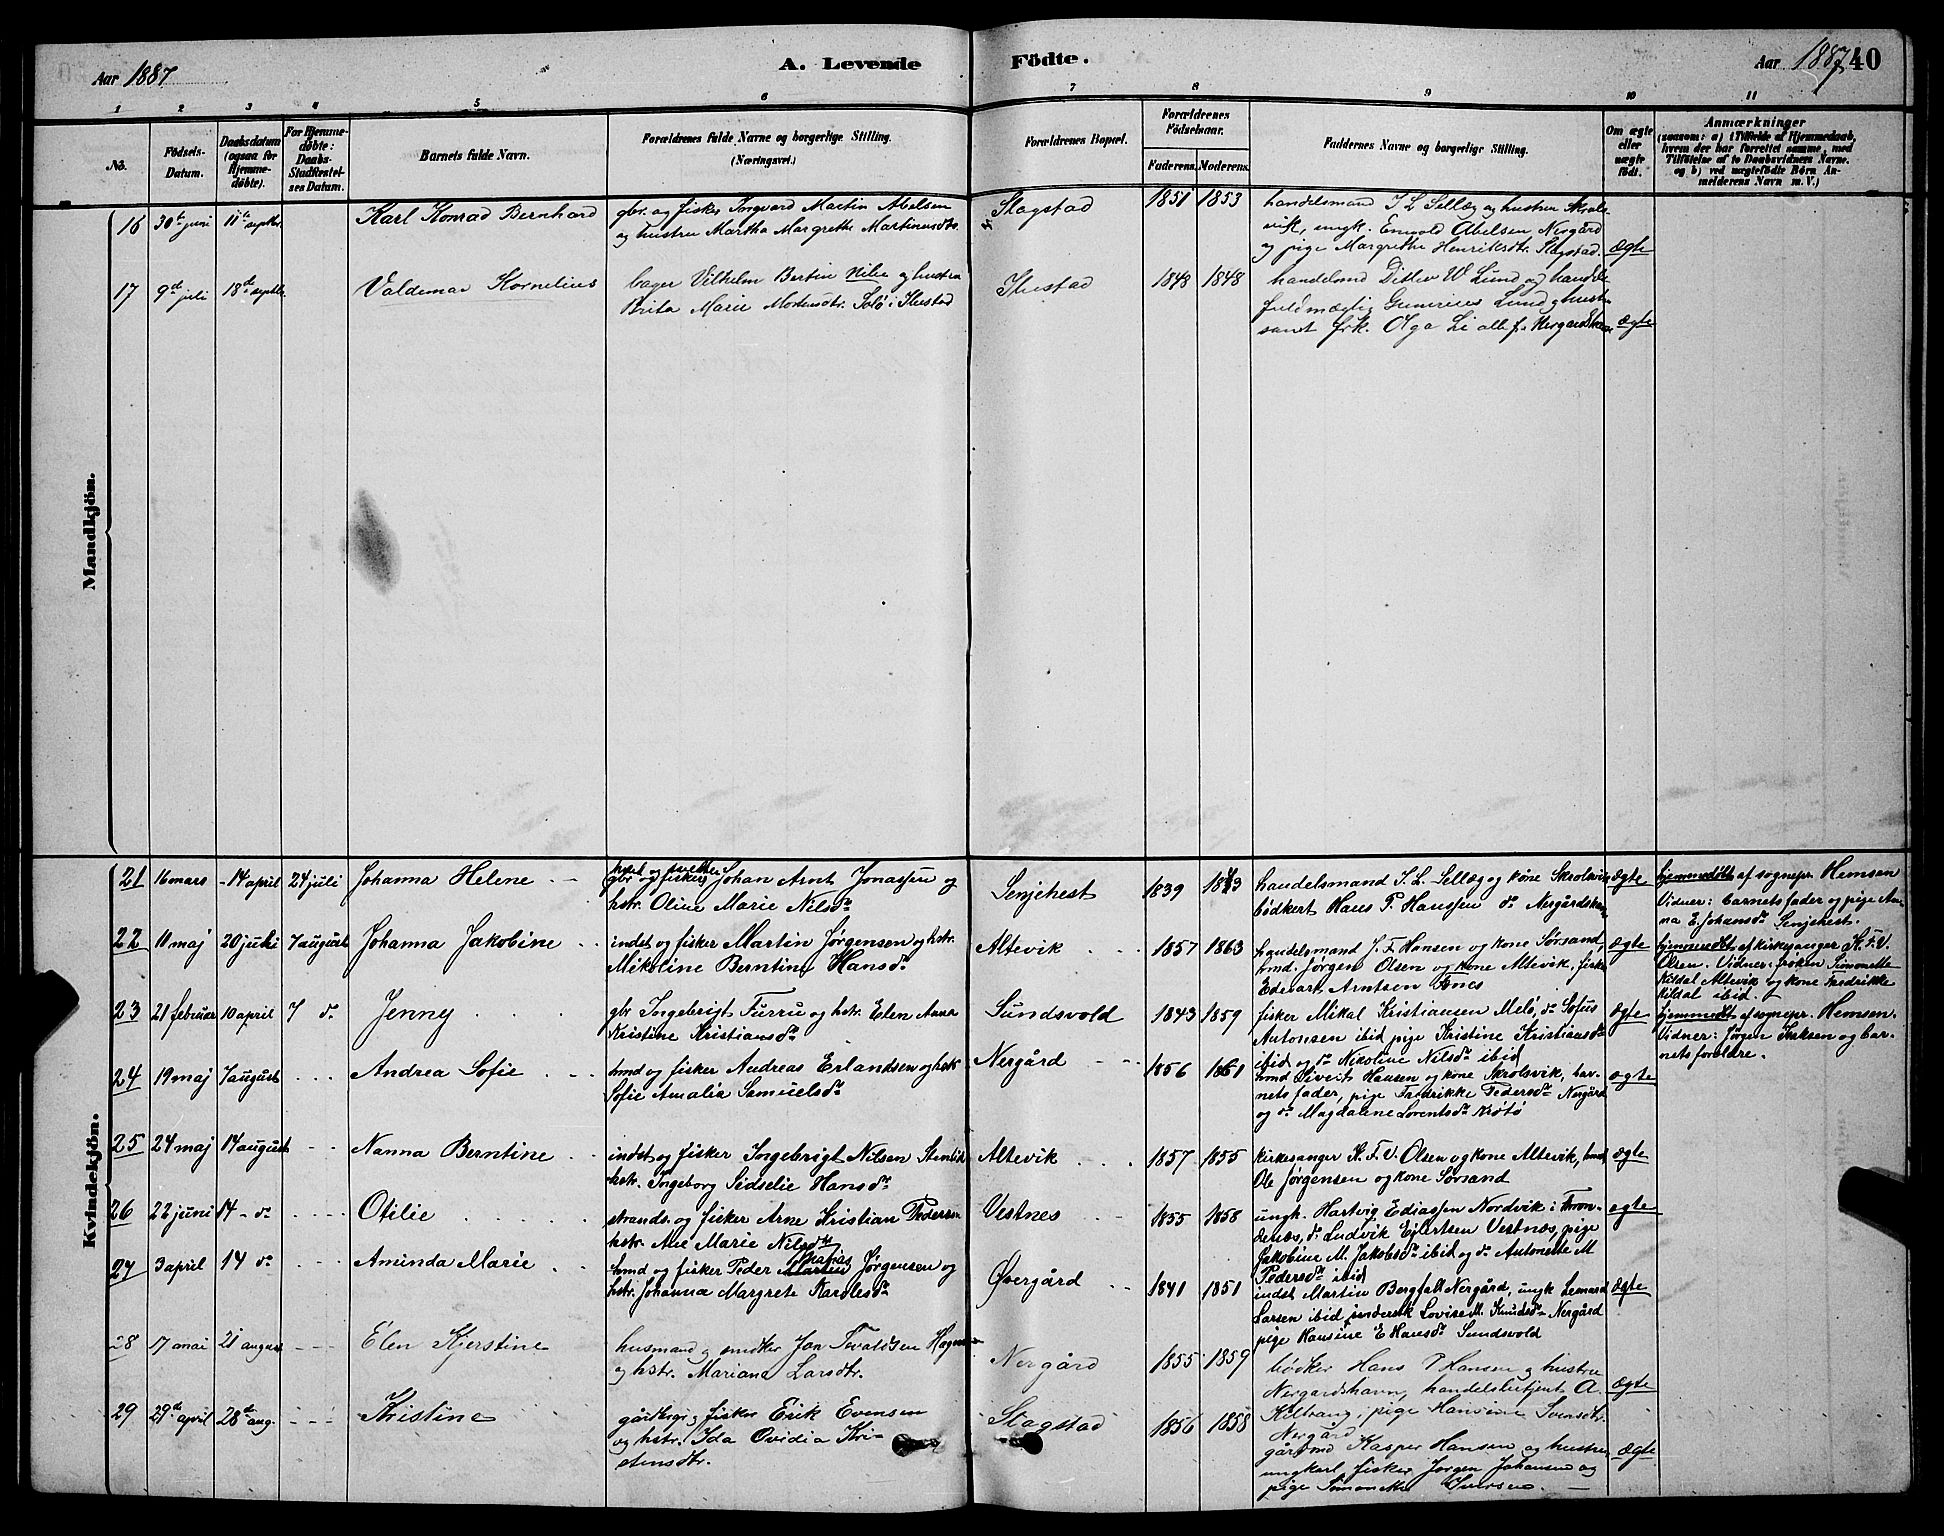 Aar 1887
A. Levende
Födte.
Aar 1887
40
1 2 3 4 5 6 7 8 9 10 11
No.
Födsels-Datum.
Daabsdatum (ogsaa for Hjemmedöbte).
For Hjemmedöbte: Daabs-Stadfæstelses Datum.
Barnets fulde Navn.
Forældrenes fulde Navne og borgerlige Stilling. (Næringsvei.)
Forældrenes Bopæl.
Forældrenes Födselsaar.
Faderens. Moderens.
Faddernes Navne og borgerlige Stilling.
Om ægte eller uægte födt.
Anmærkninger
(saasom: a) i Tilfælde af Hjemmedaab, hvem der har forrettet samme, med Tilföielse af to Daabsvidners Navne. og b) ved uægtefödte Börn Anmelderens Navn m. V.)
Mandkjön.
16 30te juni 11te septbr. Karl Konrad Bernhard
gbr. og fisker Torgvard Martin Abelsen
og hustru Martha Margrethe Martinusdtr.
Slagstad 1851 1853
handelsmand I L Sellæg og hustru Skrols-
vik, ungk. Abelsen Nergård
og pige Margrethe Henriksdtr. Slagstad. ægte
17 9de juli 18de septbr. Valdemar Kornelius
bager Vilhelm Bertin Nilse og hustru
Brita Marie Mortensdtr. i
1848 1848
handelsmd Ditlev W Lund og handels
fuldmægtig Lund
samt frk. Olga Li alle f. ægte
Kvindekjön.
21 16 mars 14 april 24 juli Johanna Helene
gbr. og fisker Johan Arnt Jonassen og
hstr. Oline Marie Nilsdr
Senjehest 1839
handelsmand I. L. Sellæg og kone Skrolsvik ægte
bödkert Hans P. Hanssen dr Nergårdshavn
hjemmedöbt af sognepr. Hemsen
Vidner: barnets fader og pige An-
na E Johansdr Senjehest.
22 11 maj 20 juli 7 august Johanna Jakobine
indst og fisker Martin Jørgensen og hstr.
Mikoline Berntine Hansdr
Altevik 1857 1863
handelsmand J. F. Hansen og kone Sørsand, ægte
hmd. Jørgen Olsen og kone Altevik, fisker
Edevart Arntsen Fnes
hjemmedöbt af kirkesanger K. F. V.
Olsen. Vidner: frøken Simonette
Kildal Altevik og kone Fredrikke
Kildal ibid.
23 21 februar 10 april 7 do Jenny
gbr Ingebrigt Furru og hstr. Elen Anna
Kristine Kristiansdr
Sundsvold 1843 1859
fisker Mikal Kristiansen Melø, do Sofus ægte
Antonsen ibid pige Kristine Kristiansdr
ibid og do Nikoline Nilsdr ibid
hjemmedt af sognepr. Hemsen.
Vidner: Jørgen Isaksen og bar-
nets forældre.
24 19 maj 7 august Andrea Sofie
hmd og fisker Andreas Erlandsen og hstr
Sofie Amalia Samuelsdr
Nergård 1856 1861
hmd Sivert Hansen og kone Skrolsvik, bar-
nets fader, pige Fredrikke Pedersdr Nergård ægte
og do Magdalene Lorentsdr Krøtø
25 24 maj 14 august Nanna Berntine
indst og fisker Ingebrigt Nilsen
hstr. Ingeborg Sidselie Hansdr
Altevik 1857 1855
kirkesanger K. F. V. Olsen og kone Altevik, hmd ægte
Ole Jørgensen og kone Sørsand
26 22 juni 14 - do Otilie
strands. og fisker Arne Kristian Pedersen
hstr. Ane Marie Nilsdr
Vestnes 1855 1858
ungk. Hartvig Ediassen Nordvik i Tron- ægte
denæs, do Ludvik Ejlertsen Vestnæs, pige
Jakobine M. Jakobsdr ibid og do Antonette M
Pedersdr ibid
27 3 april 14 do Aminda Marie
hmd og fisker Peder Jørgensen og
hstr. Johanna Margrete Karolesdr
Øvergård 1841 1851
indst Martin Bergfalt Nergård, ungk Lennard ægte
Larsen ibid inderesk Lovise M. Knudsdr Nergård
pige Hansine E Hansdr Sundsvold
28 17 mai 21 august Elen Kjerstine
husmand og snedker Jon
og hstr. Mariana Larsdtr.
Nergård 1855 1859
bödker Hans P Hansen og hustru
Nergardshavn, handelsbetjent A. ægte
pige Hansine Svensdtr.
Nergård
29 29de april 28de aug. Kristine
gårdbrgr og fisker Erik Evensen
og hstr. Ida Ovidia Kri-
stensdtr.
Slagstad 1856 1858
gårdmd Kasper Hansen og hustru ægte
ungkarl, fisker Jørgen Johansen og
pige Simoneke Iversen.